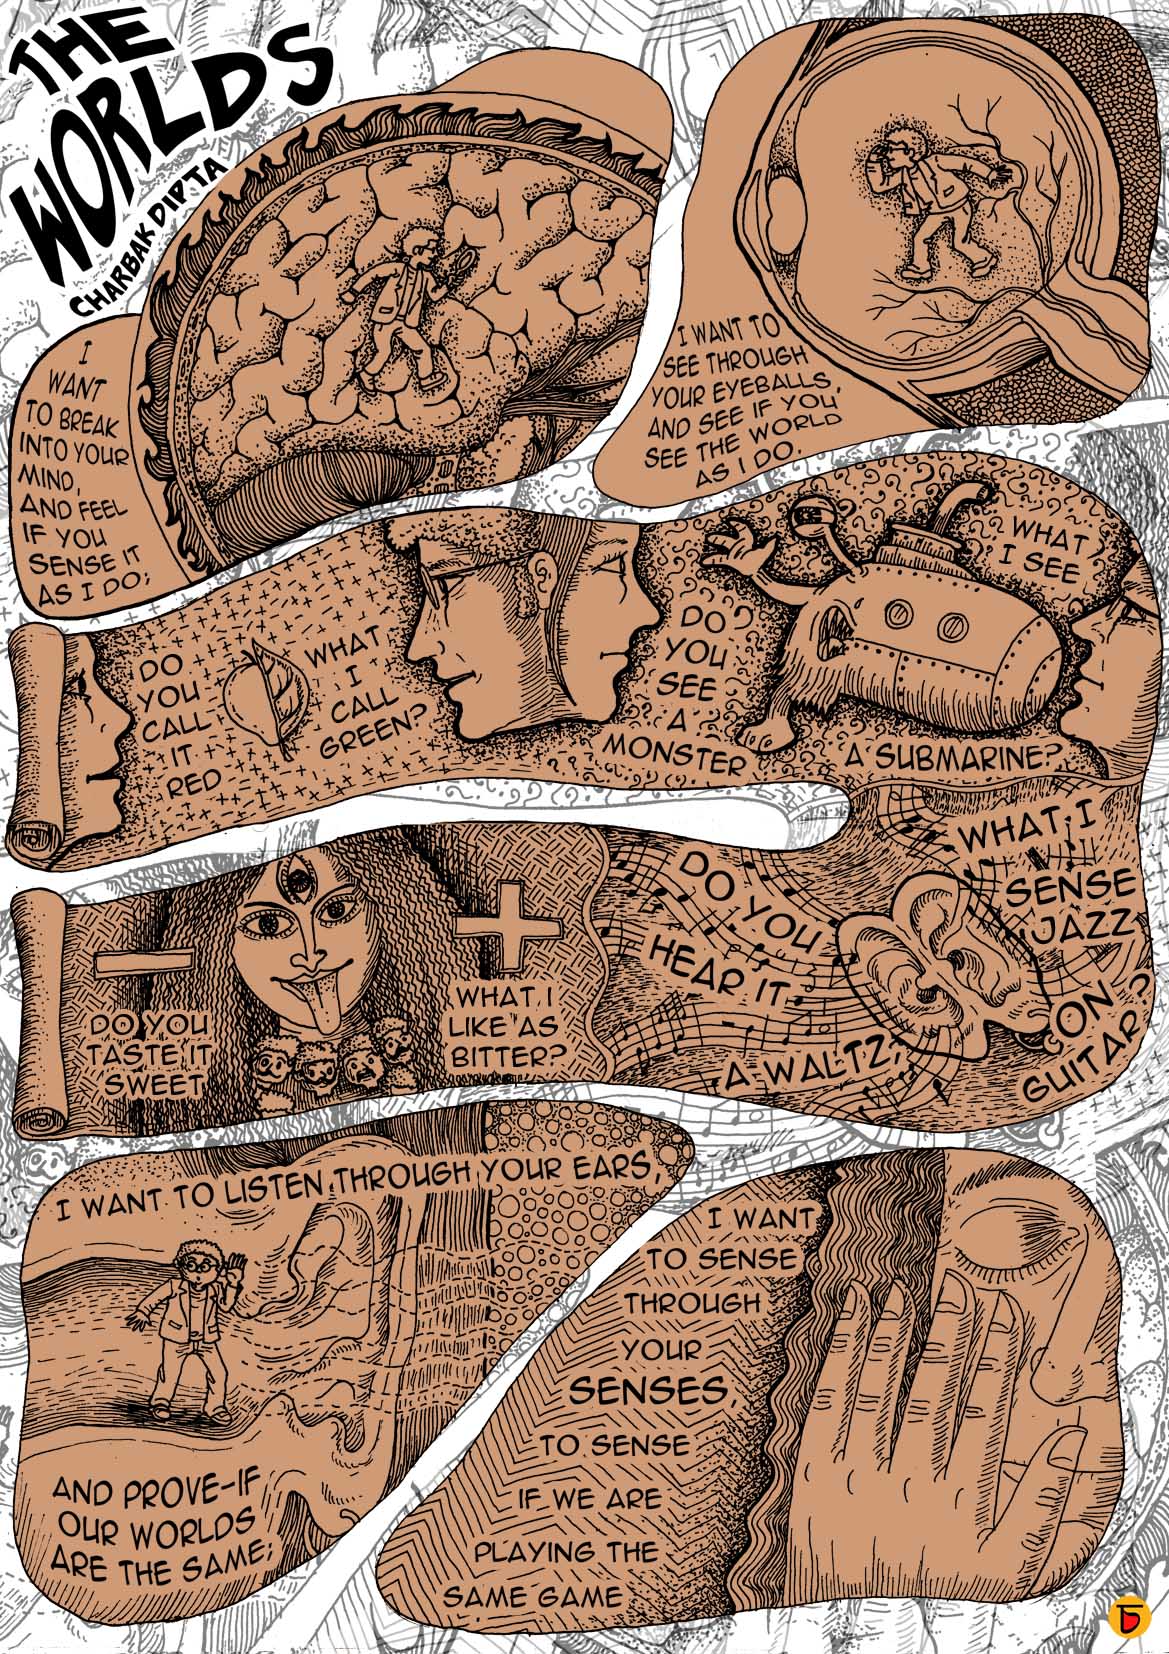 THE
WORLDS
CHARBAK DIPTA
I
WANT
TO BREAK
INTO YOUR
MIND,
AND FEEL
IF YOU
SENSE IT
AS I DO;
I WANT TO
SEE THROUGH
YOUR EYEBALLS,
AND SEE IF YOU
SEE THE WORLD
AS I DO.
DO
YOU
CALL
IT
RED
WHAT
I
CALL
GREEN?
DO
YOU
SEE
A
MONSTER
WHAT
I SEE
A SUBMARINE?
DO YOU
TASTE IT
SWEET
WHAT I
LIKE AS
BITTER?
DO YOU
HEAR IT
A WALTZ,
WHAT I
SENSE
JAZZ
ON
GUITAR?
I WANT TO LISTEN THROUGH YOUR EARS,
AND PROVE-IF
OUR WORLDS
ARE THE SAME;
I WANT
TO SENSE
THROUGH
YOUR
SENSES,
TO SENSE
IF WE ARE
PLAYING THE
SAME GAME